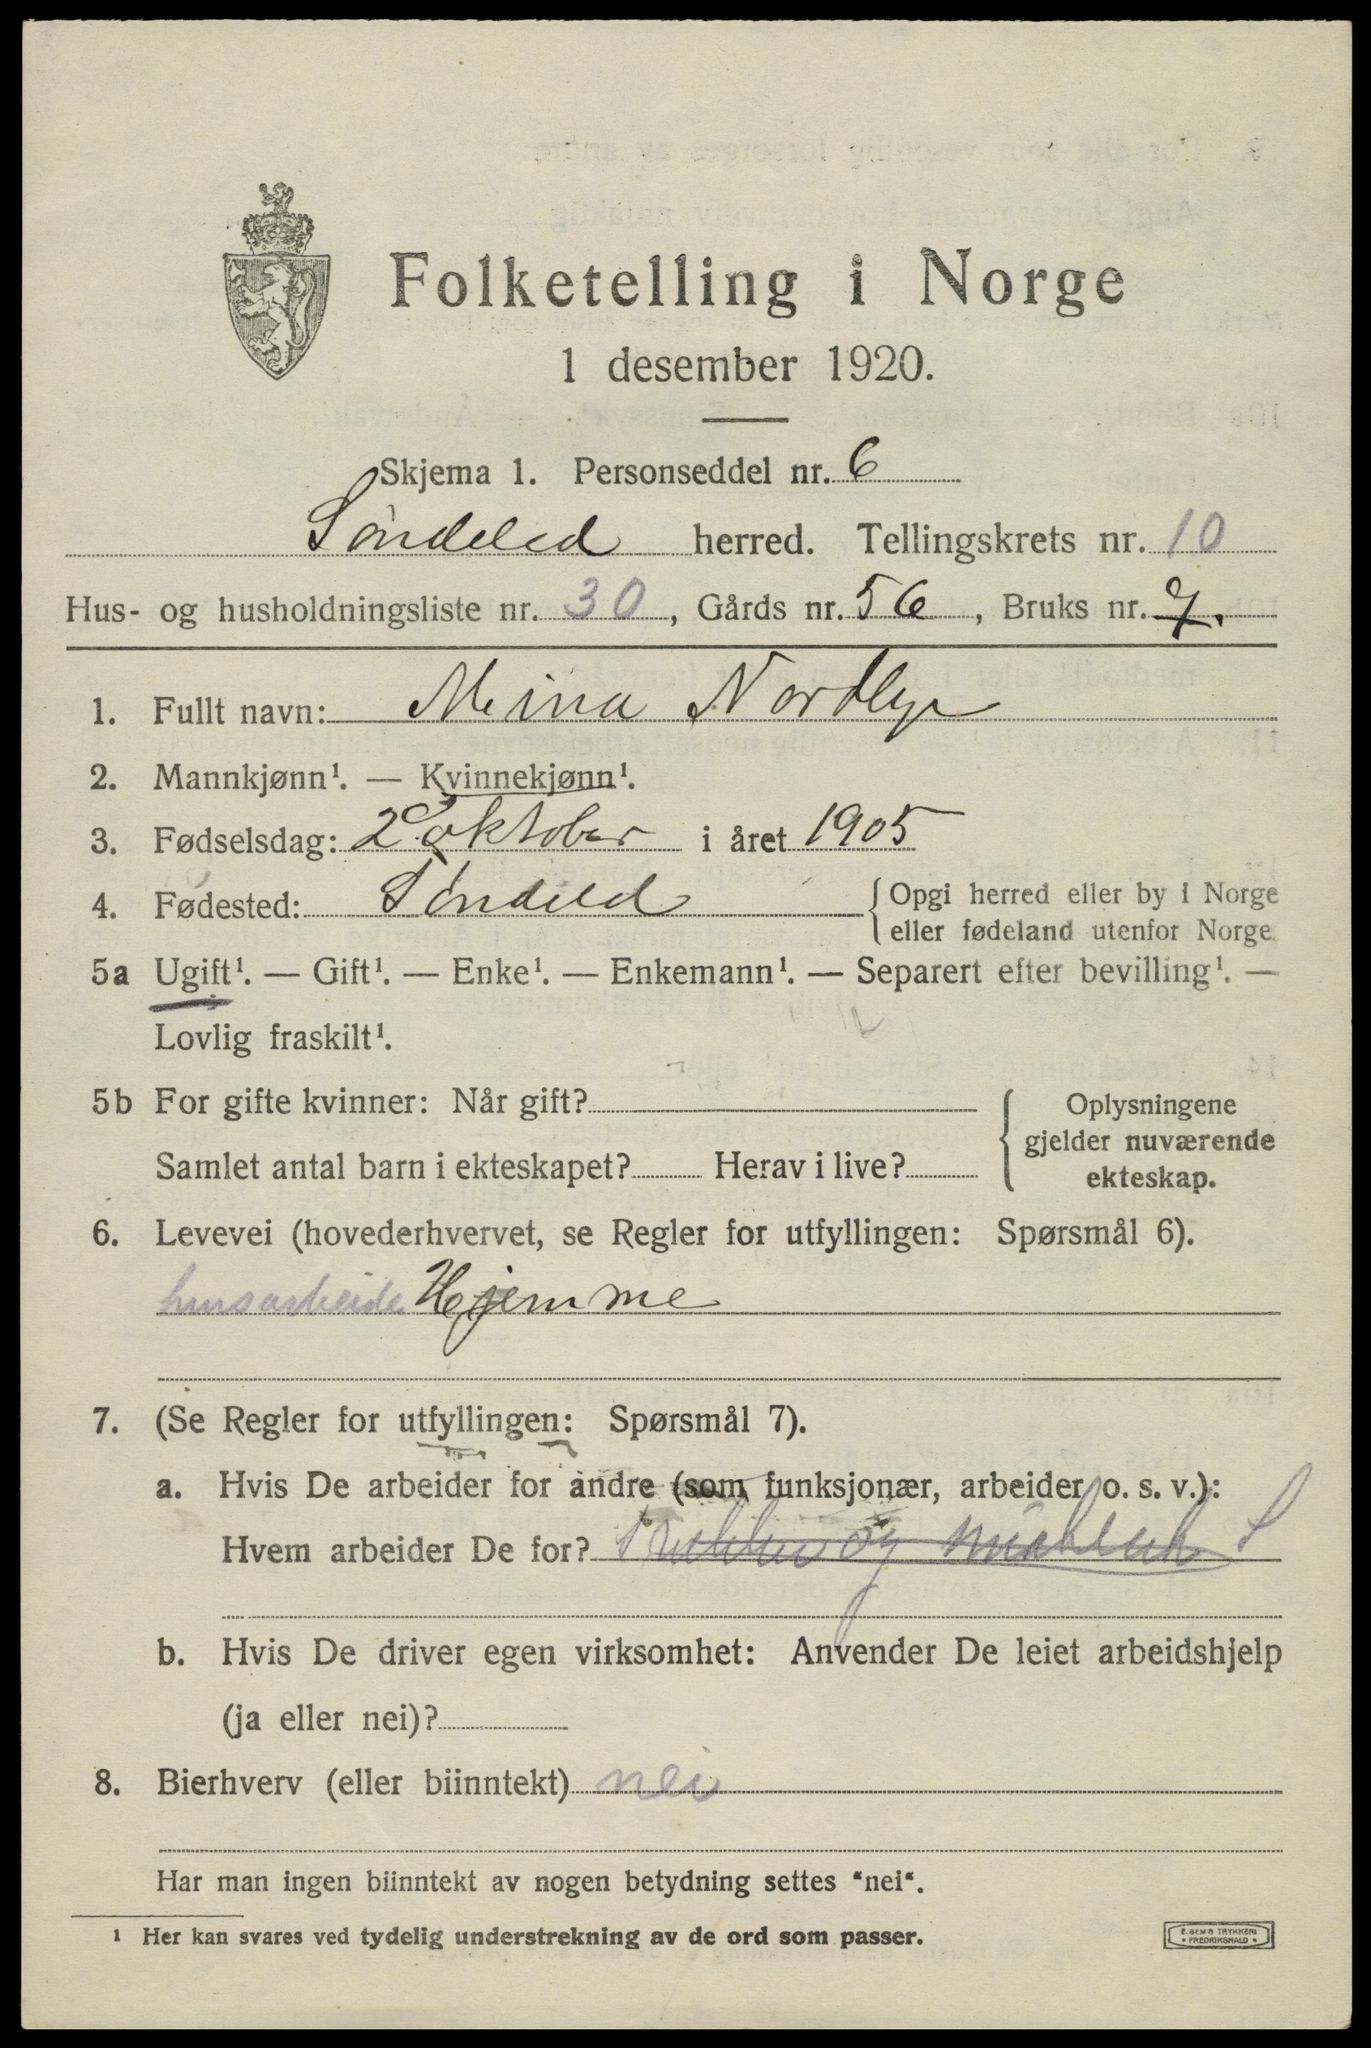 Folketelling i Norge
1 desember 1920.
Skjema 1. Personseddel nr. 6
Søndeled herred. Tellingskrets nr. 10
Hus- og husholdningsliste nr. 30, Gårds nr. 56, Bruks nr. 7.
1. Fullt navn: Mina Nordbye
2. Mannkjønn¹. — Kvinnekjønn¹.
3. Fødselsdag: 2 oktober i året 1905
4. Fødested: Søndeled {Opgi herred eller by i Norge
eller fødeland utenfor Norge
5a Ugift¹. — Gift¹. — Enke¹. — Enkemann¹. — Separert efter bevilling¹. —
Lovlig fraskilt¹.
5b For gifte kvinner: Når gift?
Samlet antal barn i ekteskapet? Herav i live?
Oplysningene
gjelder nuværende
ekteskap.
6. Levevei (hovederhvervet, se Regler for utfyllingen: Spørsmål 6).
husarbeide Hjemme
7. (Se Regler for utfyllingen: Spørsmål 7).
a. Hvis De arbeider for andre (som funksjonær, arbeider o. s. v.):
Hvem arbeider De for? og S
b. Hvis De driver egen virksomhet: Anvender De leiet arbeidshjelp
(ja eller nei)?
8. Bierhverv (eller biinntekt) nei
Har man ingen biinntekt av nogen betydning settes "nei".
¹ Her kan svares ved tydelig understrekning av de ord som passer.
E. SEM'S TRYKKERI
• FREDRIKSHALD •